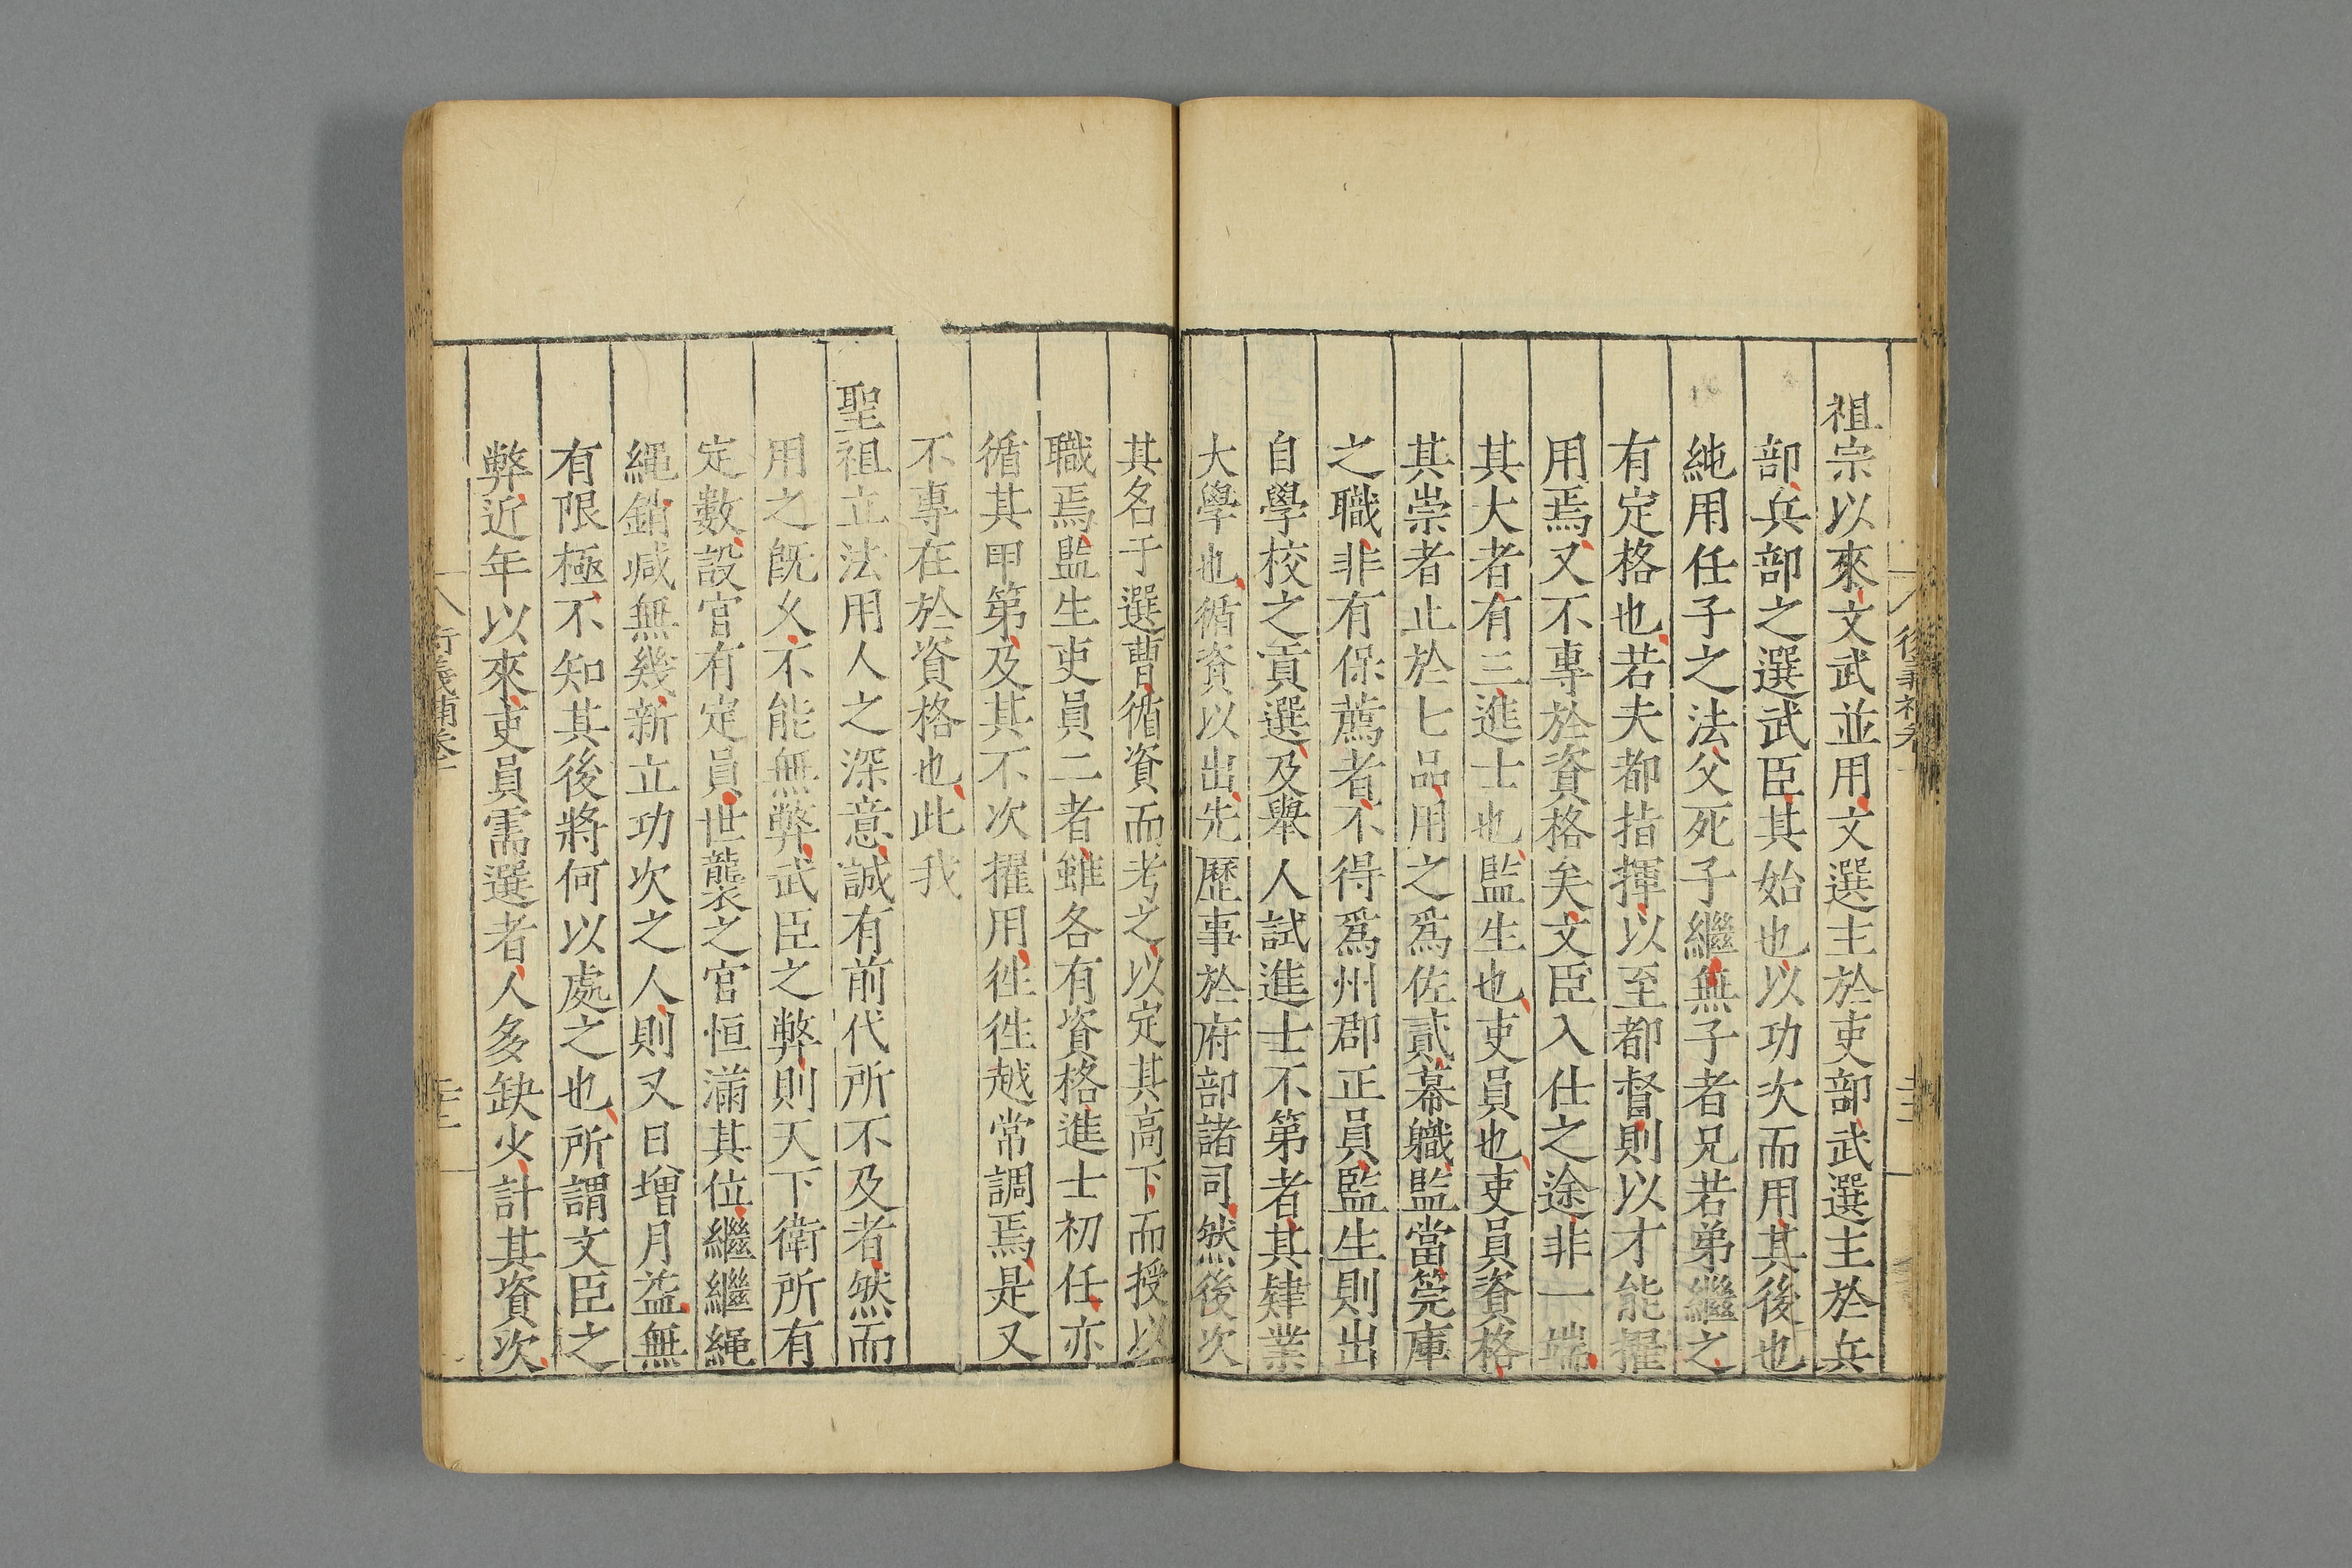 祖宗以來文武並用文選主於吏部武選主於兵
部兵部之選武臣其始也以功次而用其後也
純用任子之法父死子繼無子者兄若弟繼之
有定格也若夫都指揮以至都督則以才能擢
用焉又不專於資格矣文臣入仕之途非一端
其大者有三進士也監生也吏員也吏員資格
其崇者止於七品用之爲佐貳幕職監當筦庫
之職非有保薦者不得爲州郡正員監生則出
自學校之貢選及舉人試進士不第者其肄業
大學也循資以出先歷事於府部諸司然後次
其名于選曹循資而考之以定其高下而授以
職焉監生吏員二者雖各有資格進士初任亦
循其甲第及其不次擢用徃徃越常調焉是又
不專在於資格也此我
聖祖立法用人之深意誠有前代所不及者然而
用之旣久不能無弊武臣之弊則天下衛所有
定數設官有定員世襲之官恒滿其位繼繼繩
繩銷减無幾新立功次之人則又日增月益無
有限極不知其後將何以處之也所謂文臣之
弊近年以來吏員需選者人多缺少計其資次